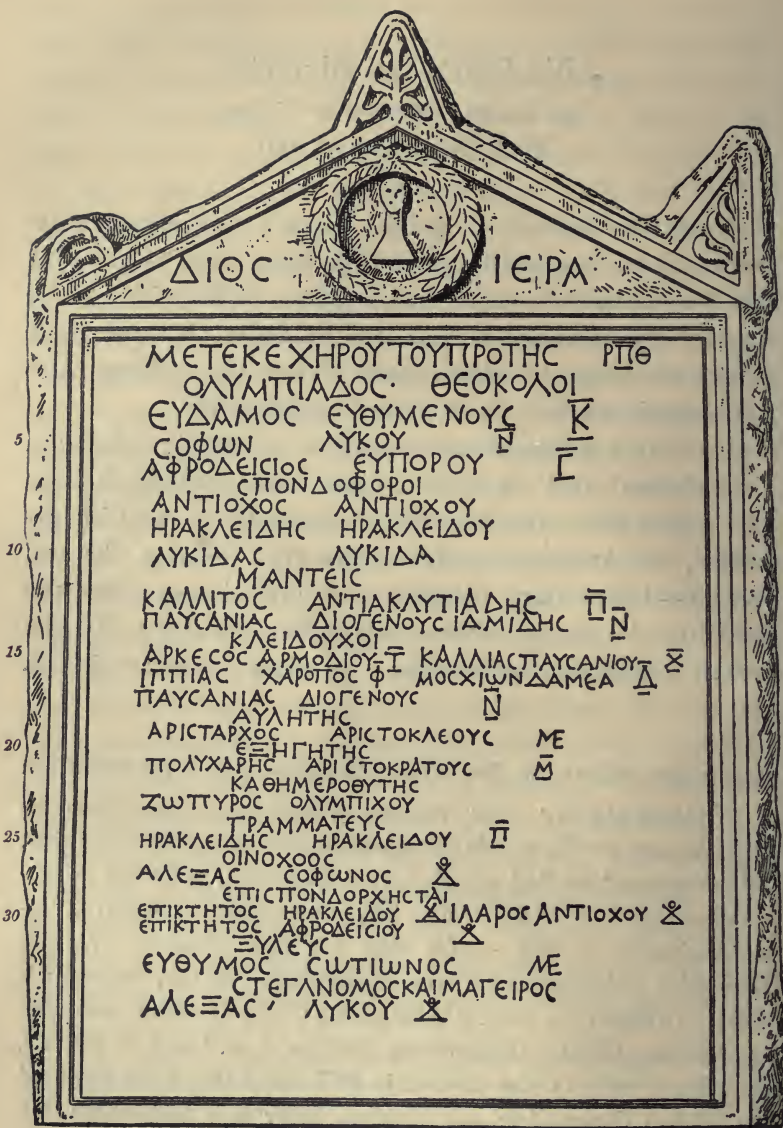 ΔΙΟϹ ΙΕΡΑ
ΜΕΤΕΚΕΧΗΡΟΥΤΟΥΠΡΟΤΗϹ ΡΠΘ
ΟΛΥΜΠΙΑΔΟϹ· ΘΕΟΚΟΛΟΙ
ΕΥΔΑΜΟϹ ΕΥΘΥΜΕΝΟΥϹ Κ
5 ϹΟΦΩΝ ΛΥΚΟΥ Ν
ΑΦΡΟΔΕΙϹΙΟϹ ΕΥΠΟΡΟΥ Γ
ϹΠΟΝΔΟΦΟΡΟΙ
ΑΝΤΙΟΧΟϹ ΑΝΤΙΟΧΟΥ
ΗΡΑΚΛΕΙΔΗϹ ΗΡΑΚΛΕΙΔΟΥ
10 ΛΥΚΙΔΑϹ ΛΥΚΙΔΑ
ΜΑΝΤΕΙϹ
ΚΑΛΛΙΤΟϹ ΑΝΤΙΑΚΛΥΤΙΑΔΗϹ Π
ΠΑΥϹΑΝΙΑϹ ΔΙΟΓΕΝΟΥϹΙΑΜΙΔΗϹ Ν
ΚΛΕΙΔΟΥΧΟΙ
15 ΑΡΚΕϹΟϹ ΑΡΜΟΔΙΟΥ Τ ΚΑΛΛΙΑϹΠΑΥϹΑΝΙΟΥ Χ
ΙΠΠΙΑϹ ΧΑΡΟΠΟϹ Φ ΜΟϹΧΙΩΝΔΑΜΕΑ Δ
ΠΑΥϹΑΝΙΑϹ ΔΙΟΓΕΝΟΥϹ Ν
ΑΥΛΗΤΗϹ
ΑΡΙϹΤΑΡΧΟϹ ΑΡΙϹΤΟΚΛΕΟΥϹ ΜΕ
20 ΕΞΗΓΗΤΗϹ
ΠΟΛΥΧΑΡΗϹ ΑΡΙϹΤΟΚΡΑΤΟΥϹ Μ
ΚΑΘΗΜΕΡΟΘΥΤΗϹ
ΖΩΠΥΡΟϹ ΟΛΥΜΠΙΧΟΥ
ΓΡΑΜΜΑΤΕΥϹ
25 ΗΡΑΚΛΕΙΔΗϹ ΗΡΑΚΛΕΙΔΟΥ Π
ΟΙΝΟΧΟΟϹ
ΑΛΕΞΑϹ ϹΟΦΩΝΟϹ
ΕΠΙϹΠΟΝΔΟΡΧΗϹΤΑΙ
30 ΕΠΙΚΤΗΤΟϹ ΗΡΑΚΛΕΙΔΟΥ ΙΛΑΡΟϹ ΑΝΤΙΟΧΟΥ
ΕΠΙΚΤΗΤΟϹ ΑΦΡΟΔΕΙϹΙΟΥ
ΞΥΛΕΥϹ
ΕΥΘΥΜΟϹ ϹΩΤΙΩΝΟϹ ΜΕ
ϹΤΕΓΛΝΟΜΟϹΚΑΙΜΑΓΕΙΡΟϹ
ΑΛΕΞΑϹ ΛΥΚΟΥ